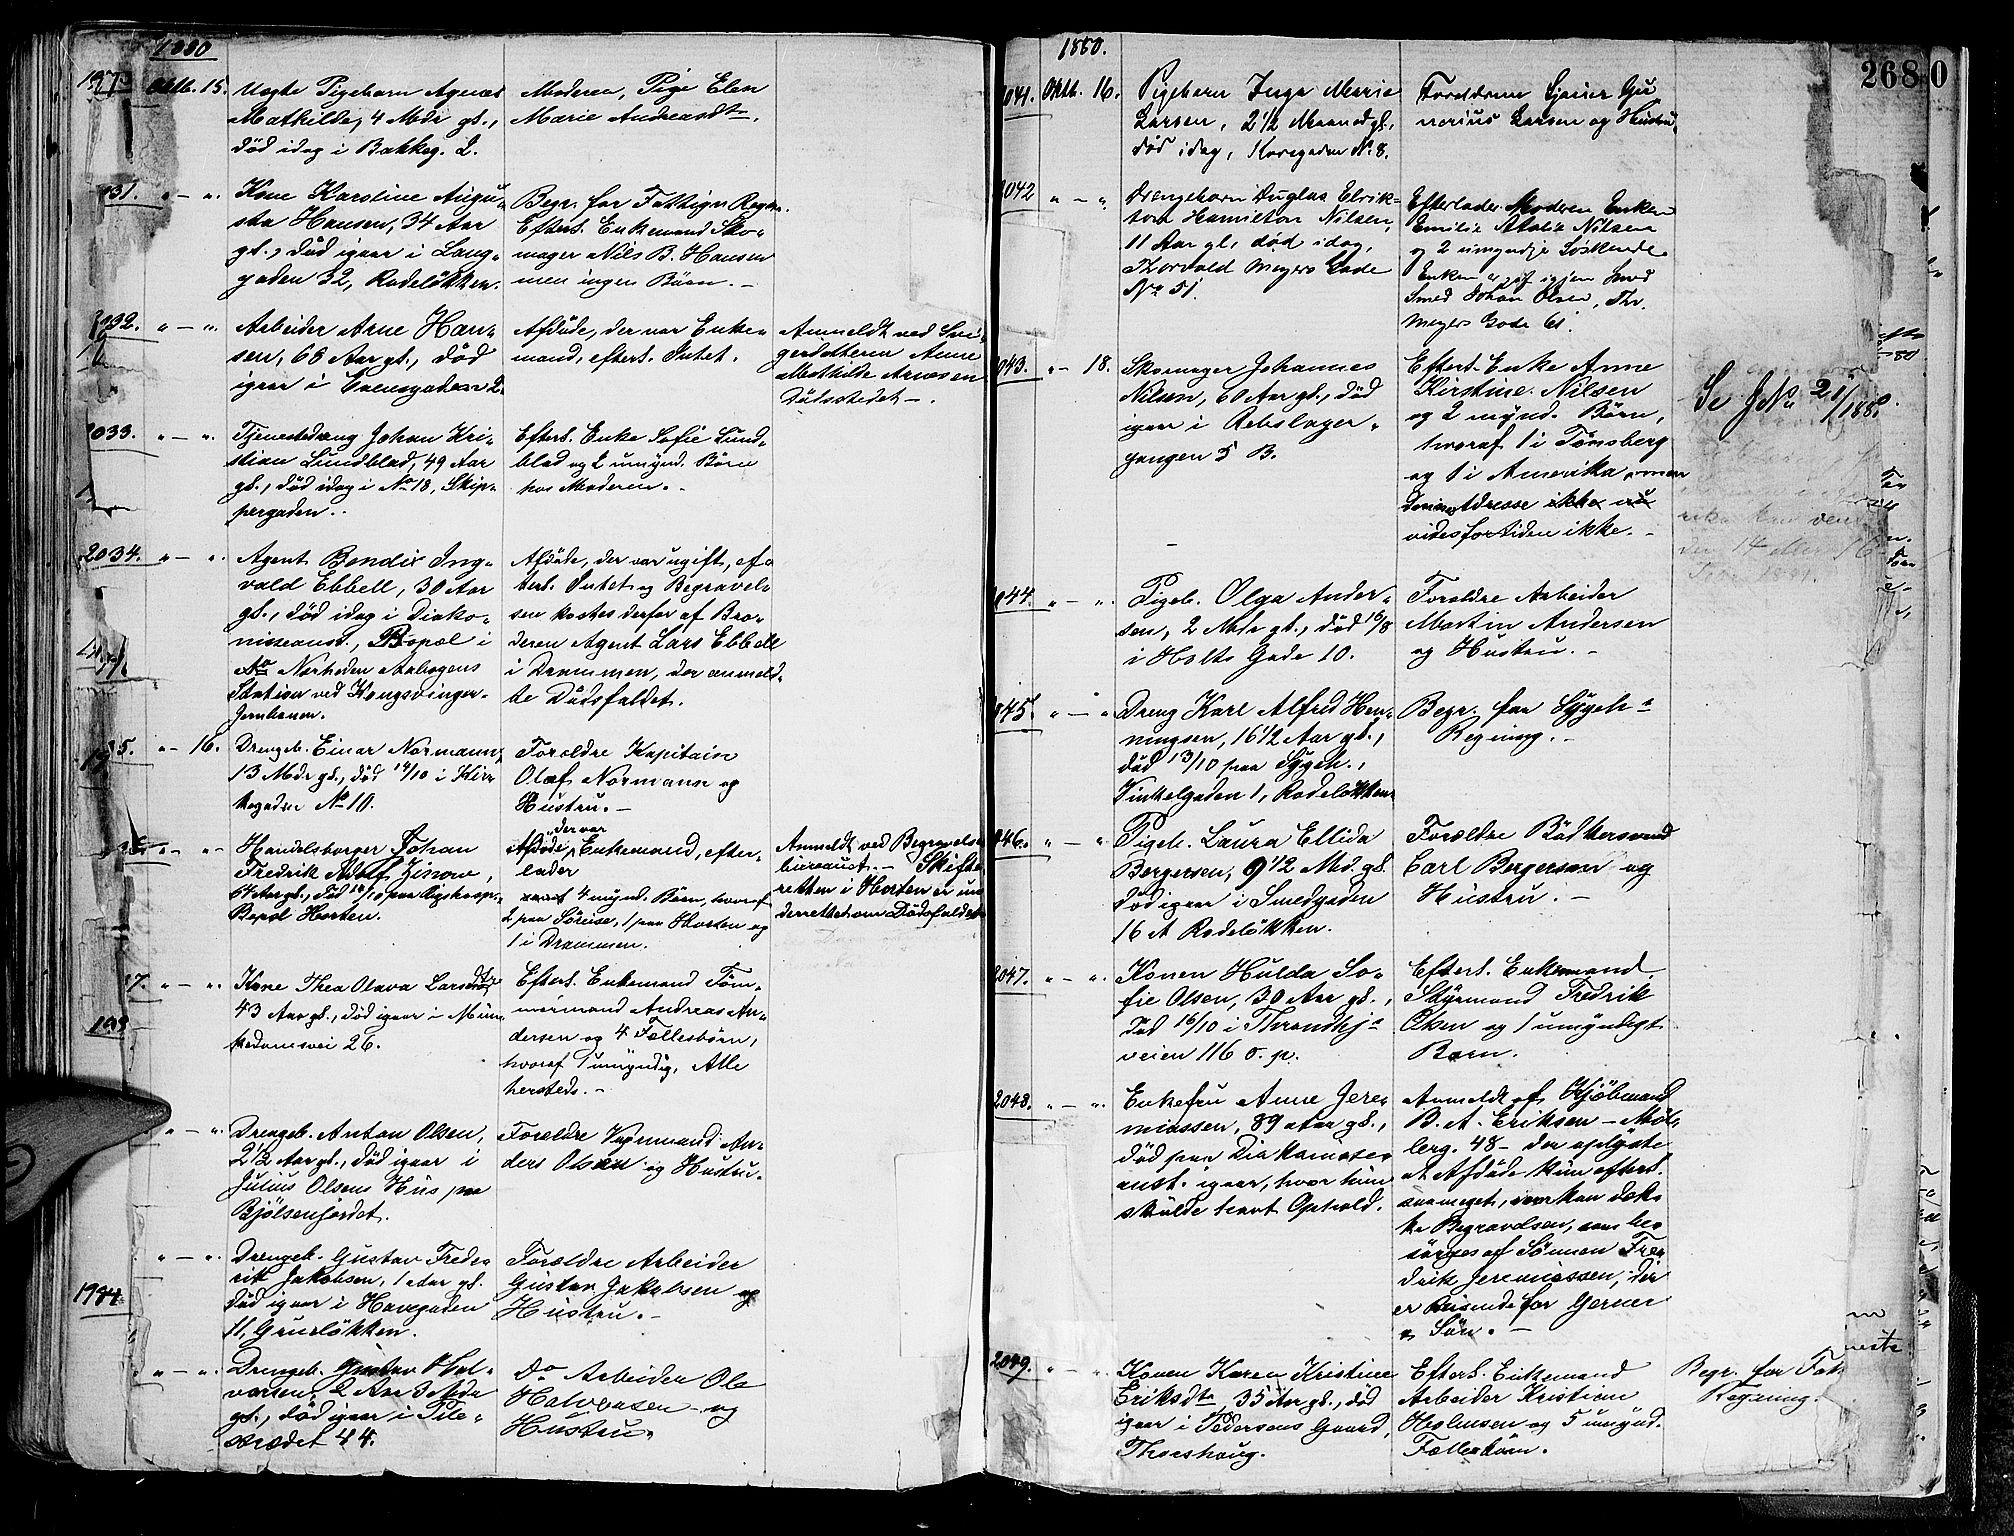 1880
Oktb. 15.
Uægte Pigebarn Agnes
Mathilde, 4 Mdr gl.,
død idag i Bakkeg. 2.
Moderen, Pige Elen
Marie Andreasdtr.
31. " — "
Kone Karoline Augu-
sta Hansen, 34 Aar
gl., død igaar i Lang-
gaden 32, Rodeløkken.
Begr. for Fattigv. Regn.
Efterl. Enkemand Sko-
mager Nils B. Hansen
men ingen Børn. —
2032. " — "
Arbeider Arne Han-
sen, 68 Aar gl., død
igaar i
Afdøde, der var Enke-
mand, efterl. Intet.
Anmeldt ved Svi-
gerdatteren Anne
Mathilde Arnesen
Dødsstedet —.
2033. " — "
Tjenestedreng Johan Kri-
stian Lundblad, 49 Aar
gl., død idag i No 18, Skip-
pergaden.
Efterl. Enke Sofie Lund-
blad og 2 umynd. Børn
hos Moderen. —
2034. " — "
Agent Bendix Ing-
vald Ebbell, 30 Aar
gl., død idag i Diako-
nisseanst., Bopæl i
Nærheden Aabogens
Station ved Kongsvinger-
Jernbanen.
Afdøde, der var ugift, ef-
terl. Intet og Begravel-
sen kostes derfor af Bro-
deren Agent Lars Ebbell
i Drammen, der anmeld-
te Dødsfaldet.
35. " — 16.
Drengeb. Einar Normann,
13 Mdr gl., død 14/10 i Kir-
kegaden No 10.
Forældre Kapitain
Olaf Normann og
Hustru. —
" — "
Handelsborger Johan
Fredrik Adolf Zinow,
64 Aar gl., død 14/10 paa Rigshosp.
Bopæl Horten.
der var
Afdøde, Enkemand, efter-
lader
4 mynd. Børn, hvoraf
2 paa Søreise, 1 paa Horten og
1 i Drammen.
Anmeldt ved Begravelses
bureauet. — Skifte-
retten i Horten er un-
derrettet om Dødsfaldet.
7. " — "
Kone Thea Olava Larsdtr
43 Aar gl., død igaar i Mun-
kedamsvei 26.
Efterl. Enkemand Tøm-
mermand Andreas An-
dersen og 4 Fællesbørn,
hvoraf 1 umyndig, Alle
hersteds. —
" — "
Drengeb. Anton Olsen,
2 1/2 Aar gl., død igaar i
Julius Olsens Hus paa
Bjølsenjordet.
Forældre Vognmand An-
ders Olsen og Hustru.
" — "
Drengeb. Gustav Frede-
rik Jakobsen, 1 Aar gl.
død igaar i Havegaden
11, Grünløkken.
Forældre Arbeider
Gustav Jakobsen og
Hustru. —
" — "
Drengeb. Gustav Hal-
vorsen, 2 Aar 3 Mdr
gl., død igaar i Pile-
strædet 44.
Do Arbeider Ole
Halvorsen og
Hustru.
1984
268
0
1880.
2041. Oktb. 16.
Pigebarn Inga Marie
Larsen, 2 1/2 Maaned gl.,
død idag, Korsgaden No 8.
Forældrene Ejaier Gu
nerius Larsen og Hustru.
2042 " — "
Drengebarn Duglas Elrik-
ton Hamilton Nilsen,
11 Aar gl. død idag,
Thorvald Meyers Gade
No 51.
Efterlader Modren Enken
Emilie Atalie Nilsen
og 2 umyndje Søskende.
Enken er gift igjen med
Smed Johan Olsen, Thv.
Meyers Gade 61.
2043. " — 18.
Skomager Johannes
Nilsen, 60 Aar gl., død
igaar i Rebslager-
gangen 5 B.
Efterl. Enke Anne
Kirstine Nilsen
og 2 mynd. Børn,
hvoraf 1 i Tønsberg
og 1 i Amerika, men
dennes Adresse ikke nu
vides for tiden ikke. —
Se JNo 21/1880.
2044. " — "
Pigeb. Olga Ander-
sen, 2 Mdr gl., død 16/8
i Holts Gade 10.
Forældre Arbeider
Martin Andersen
og Hustru. —
2045. " — "
Dreng Karl Alfred Hen-
ningsen, 16 1/2 Aar gl.,
død 13/10 paa Sygeh.,
Vinkelgaden 1, Rodeløkken
Begr. for Sygehs
Regning. —
2046. " — "
Pigeb. Laura Ellida
Bergersen, 9 1/2 Md. gl.
død igaar i Smedgaden
16 A Rodeløkken.
Forældre Bødkersvend
Carl Bergersen og
Hustru. —
2047. " — "
Konen Hulda So-
fie Olsen, 30 Aar gl.,
død 16/10 i Throndhjs
veien 116 o. p.
Efterl. Enkemand
Styrmand Fredrik
Olsen og 1 umyndigt
Barn.
2048. " — "
Enkefru Anne Jere-
miassen, 89 Aar gl.,
død paa Diakonisse-
anst. igaar, hvor hun
skulde havt Ophold.
Anmeldt af Kjøbmand
B. A. Eriksen — Møl-
lerg. 48 — der oplyste
at Afdøde kun efterl.
saameget, som kan dæk-
ke Begravelsen, som be-
sørges af Sønnen Fre-
drik Jeremiassen, der
er Reisende for Gerner
& Søn. —
2049. " — "
Konen Karen Kristine
Eriksdtr, 35 Aar gl., død
igaar i Pedersens Gaard,
Thoeshaug.
Efterl. Enkemand
Arbeider Kristian
og 5 umynd.
Fællesbørn.
Begr. for Fat
Regning.